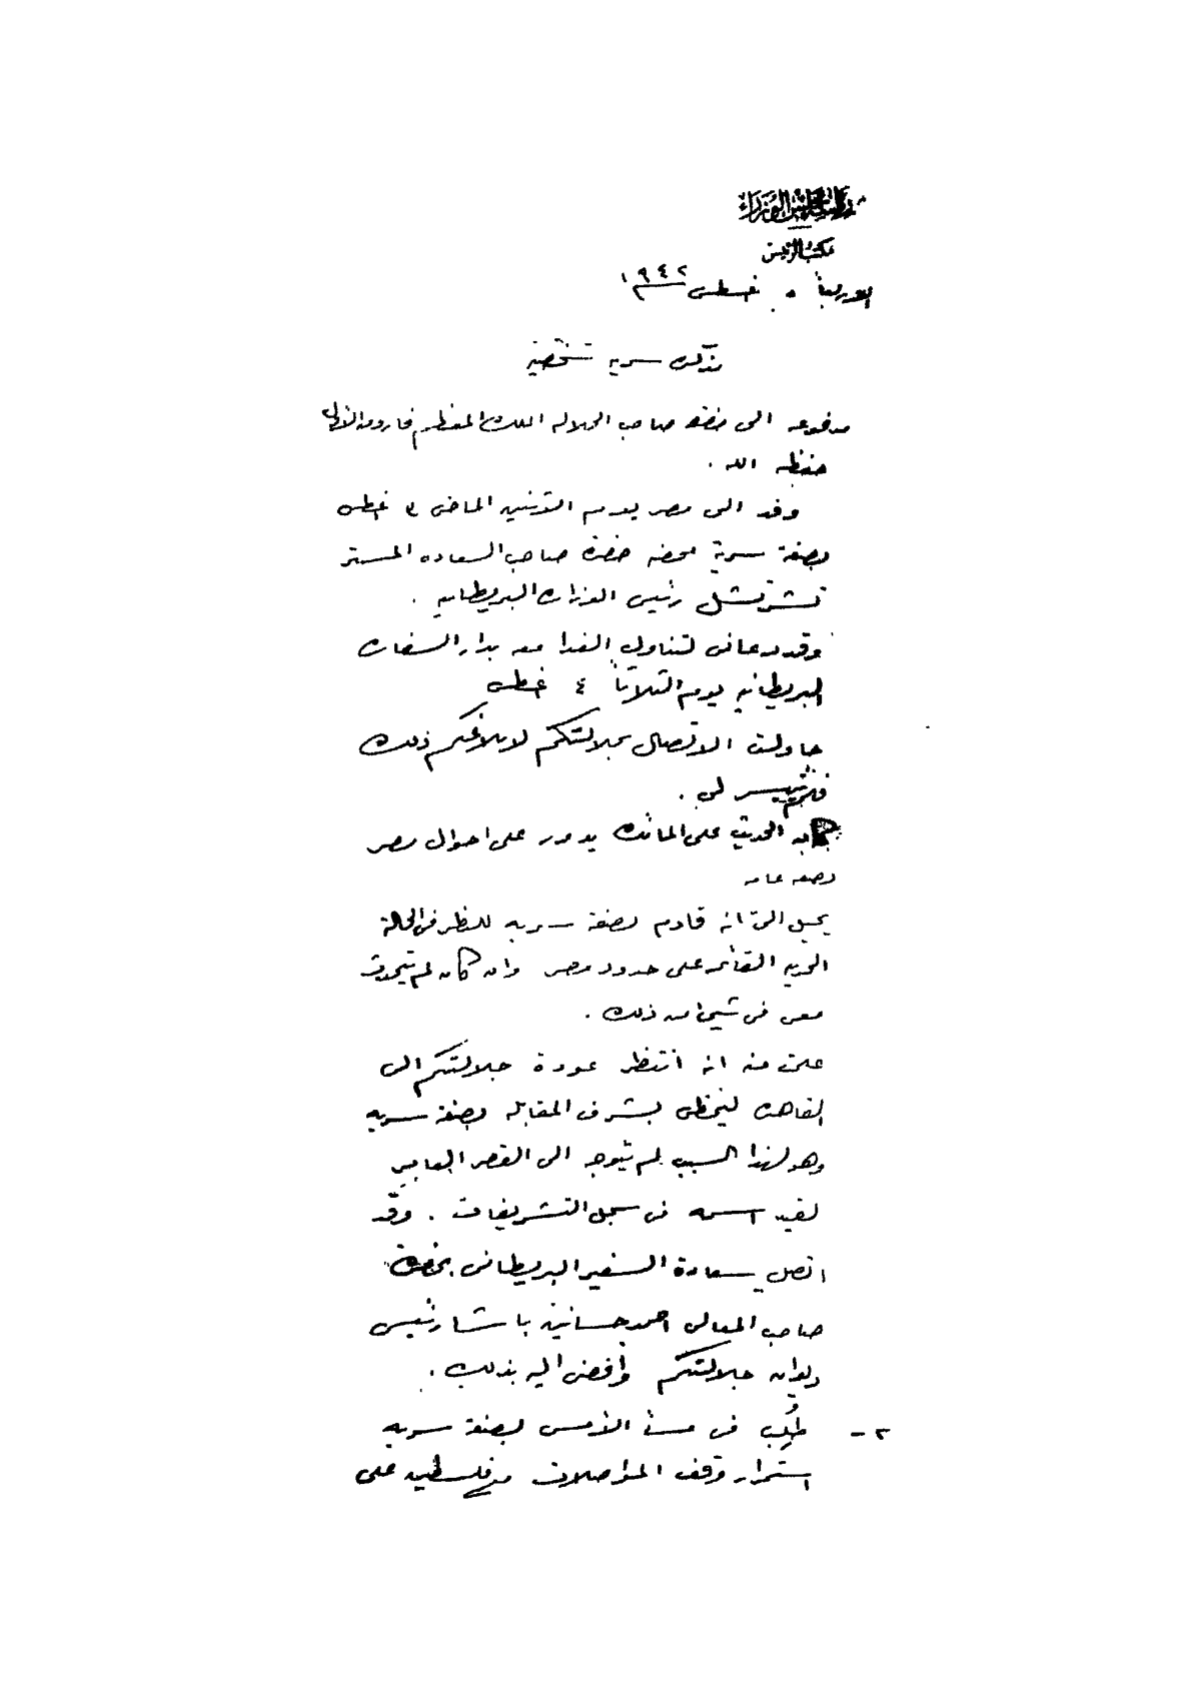 رئاسة مجلس الوزراء
مكتب الرئيس
الاربعا ٥ غسطس ١٩٤٢
مذكرة سرية شخصية
مرفوعه الى حضرة صاحب الجلاله الملك المعظم فاروق الاول
حفظه الله .
وفد الى مصر يوم الاثنين الماضى ٣ غسطس
بصفة سرية محضه حضرة صاحب السعاده المستر
تشرتشل رئيس الوزارة البريطانيه .
وقد دعانى لتناول الغدا معه بدار السفارة
البريطانيه يوم الثلاثا ٤ غسطس
حاولت الاتصال بجلالتكم لابلاغكم ذلك
فلم يتيسر لى .
كان الحديث على المائدة يدور على احوال مصر
بصفه عامه
يخيل الىّ انه قادم بصفة سريه للنظر فى الحالة
الحربيه القائمه على حدود مصر وان كان لم يتحدث
معى فى شيئ من ذلك .
علمت منه انه انتظر عودة جلالتكم الى
القاهرة ليحظى بشرف المقابله بصفة سريه
وهو لهذا السبب لم يتوجه الى القصر العامر
لقيد اسمه فى سجل التشريفات . وقد
اتصل سعادة السفير البريطانى بحضرة
صاحب المعالى احمد حسانين باشا رئيس
ديوان جلالتكم وأفضى اليه بذلك .
٢ - طُلِب فى مساء الامس بصفة سريه
استمرار وقف المواصلات مع فلسطين على